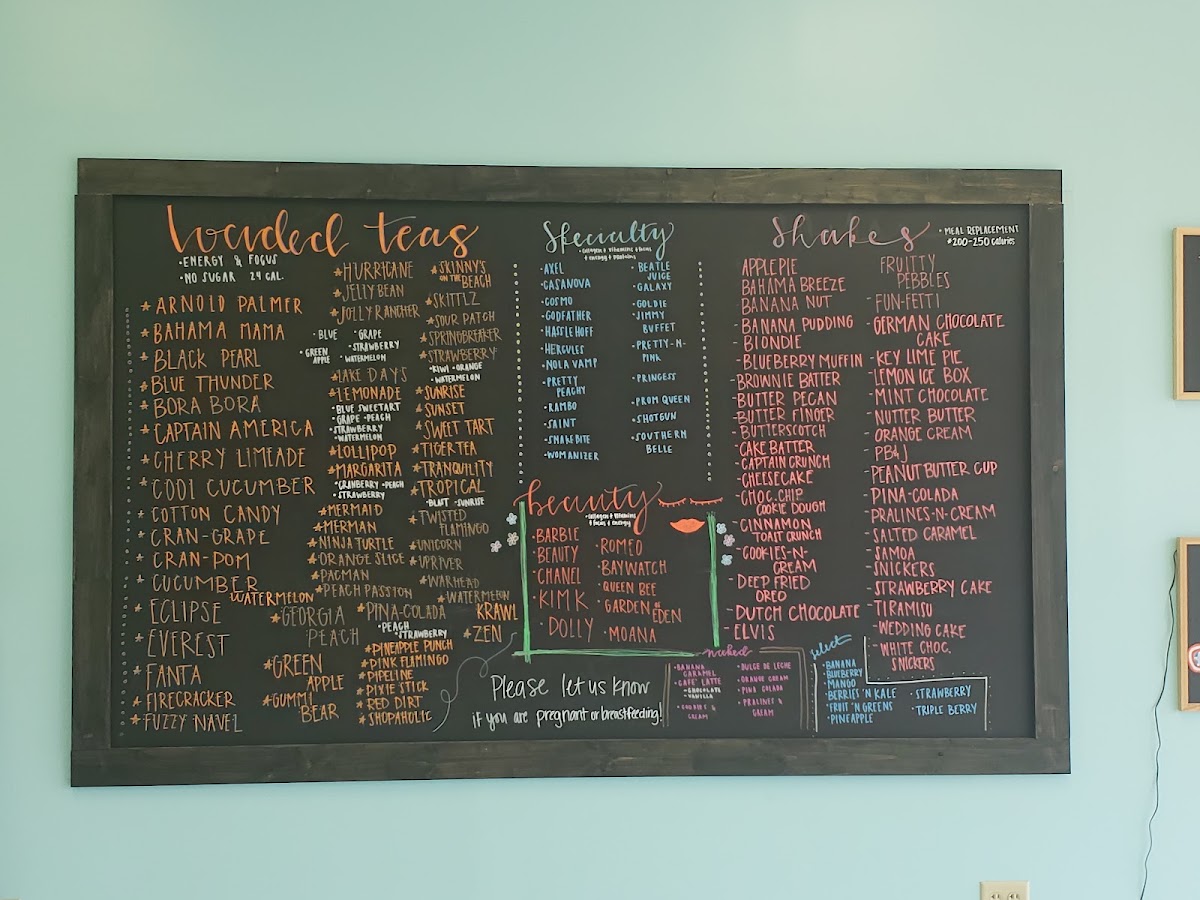 loaded teas
• ENERGY & FOCUS
• NO SUGAR 24 CAL.
* ARNOLD PALMER
* BAHAMA MAMA
* BLACK PEARL
* BLUE THUNDER
* BORA BORA
* CAPTAIN AMERICA
* CHERRY LIMEADE
* COOL CUCUMBER
* COTTON CANDY
* CRAN-GRAPE
* CRAN-POM
* CUCUMBER
WATERMELON
* ECLIPSE
* EVEREST
* FANTA
* FIRECRACKER
* FUZZY NAVEL
* GEORGIA
PEACH
* GREEN
APPLE
* GUMMI
BEAR
* HURRICANE
* JELLY BEAN
* JOLLY RANCHER
• BLUE • GRAPE
• GREEN APPLE • STRAWBERRY
• WATERMELON
* LAKE DAYS
* LEMONADE
• BLUE SWEETART
• GRAPE • PEACH
• STRAWBERRY
• WATERMELON
* LOLLIPOP
* MARGARITA
• CRANBERRY • PEACH
• STRAWBERRY
* MERMAID
* MERMAN
* NINJA TURTLE
* ORANGE SLICE
* PACMAN
* PEACH PASSION
* PINA-COLADA
• PEACH
• STRAWBERRY
* PINEAPPLE PUNCH
* PINK FLAMINGO
* PIPELINE
* PIXIE STICK
* RED DIRT
* SHOPAHOLIC
* SKINNY'S
ON THE BEACH
* SKITTLZ
* SOUR PATCH
* SPRINGBREAKER
* STRAWBERRY
• KIWI • ORANGE
• WATERMELON
* SUNRISE
* SUNSET
* SWEET TART
* TIGER TEA
* TRANQUILITY
* TROPICAL
• BLAST • SUNRISE
* TWISTED
FLAMINGO
* UNICORN
* UPRIVER
* WARHEAD
* WATERMELON
KRAWL
* ZEN
Specialty
• AXEL
• CASANOVA
• COSMO
• GODFATHER
• HASSLEHOFF
• HERCULES
• NOLA VAMP
• PRETTY
PEACHY
• RAMBO
• SAINT
• SNAKE BITE
• WOMANIZER
• BEATLE
JUICE
• GALAXY
• GOLDIE
• JIMMY
BUFFET
• PRETTY-N-
PINK
• PRINCESS
• PROM QUEEN
• SHOTGUN
• SOUTHERN
BELLE
beauty
• BARBIE
• BEAUTY
• CHANEL
• KIM K
• DOLLY
• ROMEO
• BAYWATCH
• QUEEN BEE
• GARDEN OF
EDEN
• MOANA
Please let us know
if you are pregnant or breastfeeding!
Shakes
• MEAL REPLACEMENT
#200-250 calories
APPLE PIE
BAHAMA BREEZE
BANANA NUT
- BANANA PUDDING
- BLONDIE
- BLUEBERRY MUFFIN
- BROWNIE BATTER
- BUTTER PECAN
- BUTTER FINGER
- BUTTERSCOTCH
- CAKE BATTER
- CAPTAIN CRUNCH
- CHEESECAKE
- CHOC. CHIP
COOKIE DOUGH
- CINNAMON
TOAST CRUNCH
- COOKIES-N-
CREAM
- DEEP FRIED
OREO
- DUTCH CHOCOLATE
- ELVIS
FRUITTY
PEBBLES
- FUN-FETTI
- GERMAN CHOCOLATE
CAKE
- KEY LIME PIE
- LEMON ICE BOX
- MINT CHOCOLATE
- NUTTER BUTTER
- ORANGE CREAM
- PB&J
- PEANUT BUTTER CUP
- PINA-COLADA
- PRALINES-N-CREAM
- SALTED CARAMEL
- SAMOA
- SNICKERS
- STRAWBERRY CAKE
- TIRAMISU
- WEDDING CAKE
- WHITE CHOC.
SNICKERS
naked
• BANANA
CARAMEL
• CAFE' LATTE
• CHOCOLATE
• VANILLA
• COOKIES &
CREAM
• DULCE DE LECHE
• ORANGE CREAM
• PINA COLADA
• PRALINES &
CREAM
select
• BANANA
• BLUEBERRY
• MANGO
• BERRIES 'N KALE
• FRUIT 'N GREENS
• PINEAPPLE
• STRAWBERRY
• TRIPLE BERRY